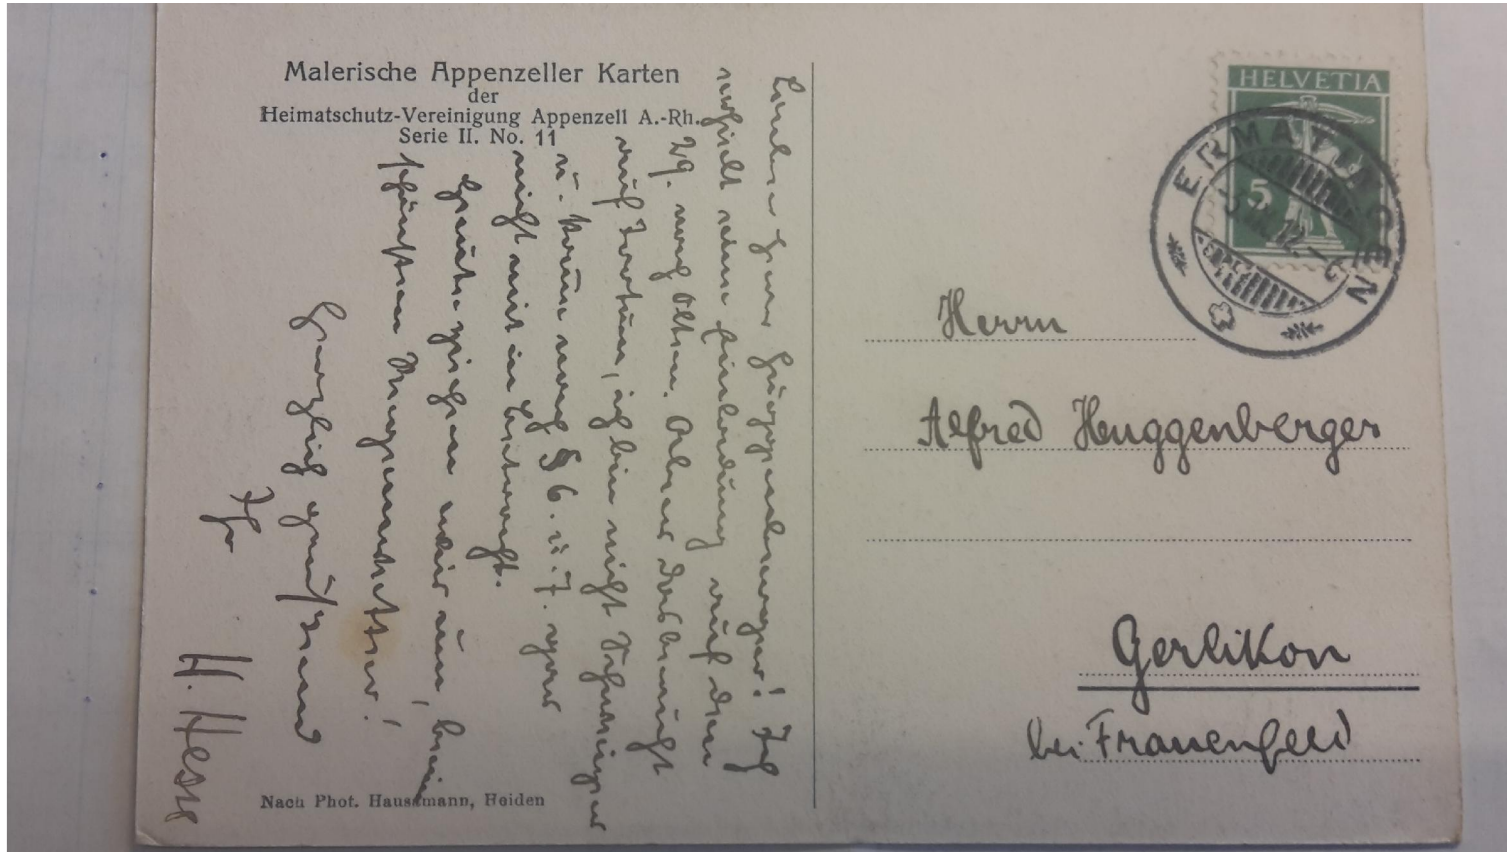 Malerische Appenzeller Karten
der
Heimatschutz-Vereinigung Appenzell A.-Rh.
Serie II. No. 11
Lieber Herr Huggenberger! Ich
erhielt eine Einladung auf den
29. nach Olten. Aber das beruht
auf Irrtum, ich bin nicht Schweizer
u. nach § 6. u. 7. gar
nicht mit in Betracht.
Heute ziehen wir um, beim
schönsten Regenwetter!
Herzlich grüssend
Ihr
H. Hesse
Nach Phot. Haussmann, Heiden
HELVETIA
5
ERMATINGEN
Herrn
Alfred Huggenberger
Gerlikon
bei Frauenfeld